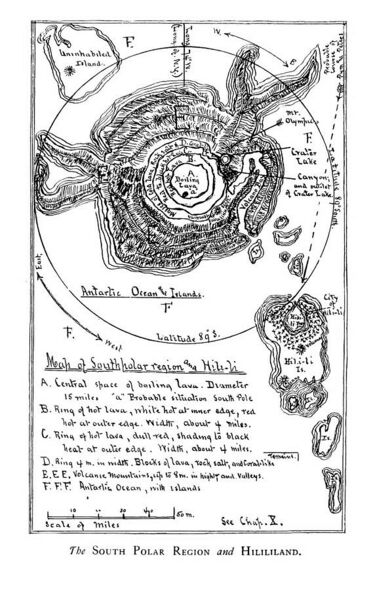 Uninhabited
Island.
F.
W.
E
Probable
Course of
Pym & Peters
Mt.
Olympus
F.
Crater
Lake
Canyon,
and outlet of
Crater Lake
B.
A.
Boiling
Lava
"a"
Antarctic Ocean & Islands.
F
East
West
F.
Latitude 89°S.
City
of
Hili-li
Hili-li
Is.
Is.
Map of South polar region and Hili-li
A. Central space of boiling lava. Diameter
15 miles "a" Probable situation South Pole
B. Ring of hot lava, white hot at inner edge, red
hot at outer edge. Width, about 4 miles.
C. Ring of hot lava, dull red, shading to black
heat at outer edge. Width, about 4 miles.
D. Ring 4 m. in width. Blocks of lava, rock salt, and Coral-like
remains.
E.E.E, Volcanic Mountains, up to 8 m. in hight and Valleys.
F. F. F. Antarctic Ocean, with islands
10 20 40 50 m.
Scale of Miles
See Chap. X.
The SOUTH POLAR REGION and HILILILAND.